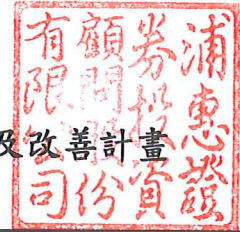 浦惠證
券投資
顧問股份
有限公司
及改善計畫